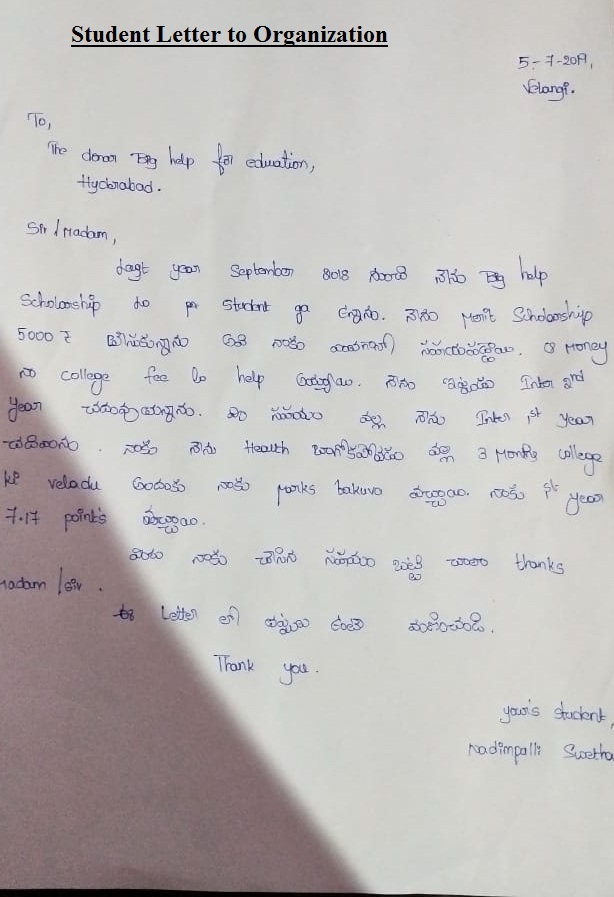 Student Letter to Organization
5-7-2019,
Velangi.
To,
The donar Big help for eduation,
Hyderabad.
Sir / Madam,
Last year September 2018 నుంచి నేను Big help
Scholarship lo student ga ఉన్నాను. నేను Merit Scholarship
5000 ₹ తీసుకున్నాను అవి నాకు సహాయపడ్డాయి. Money
నా college fee lo help అయ్యాయి. నేను ఇప్పుడు Inter 2nd
Year చదువుతున్నాను. మీ సహాయం వల్ల నేను Inter 1st Year
చదివాను. నాకు నేను Health బాగోకపోవడం వల్ల 3 Months college
ki veladu అందుకు నాకు marks takuva వచ్చాయి. నాకు 1st year
7.17 point's వచ్చాయి.
మీరు నాకు చేసిన సహాయం బట్టి చాలా thanks
madam / Sir.
Letter లో తప్పులు ఉంటే మణించండి.
Thank you.
your's student,
Nadimpalli Swetha